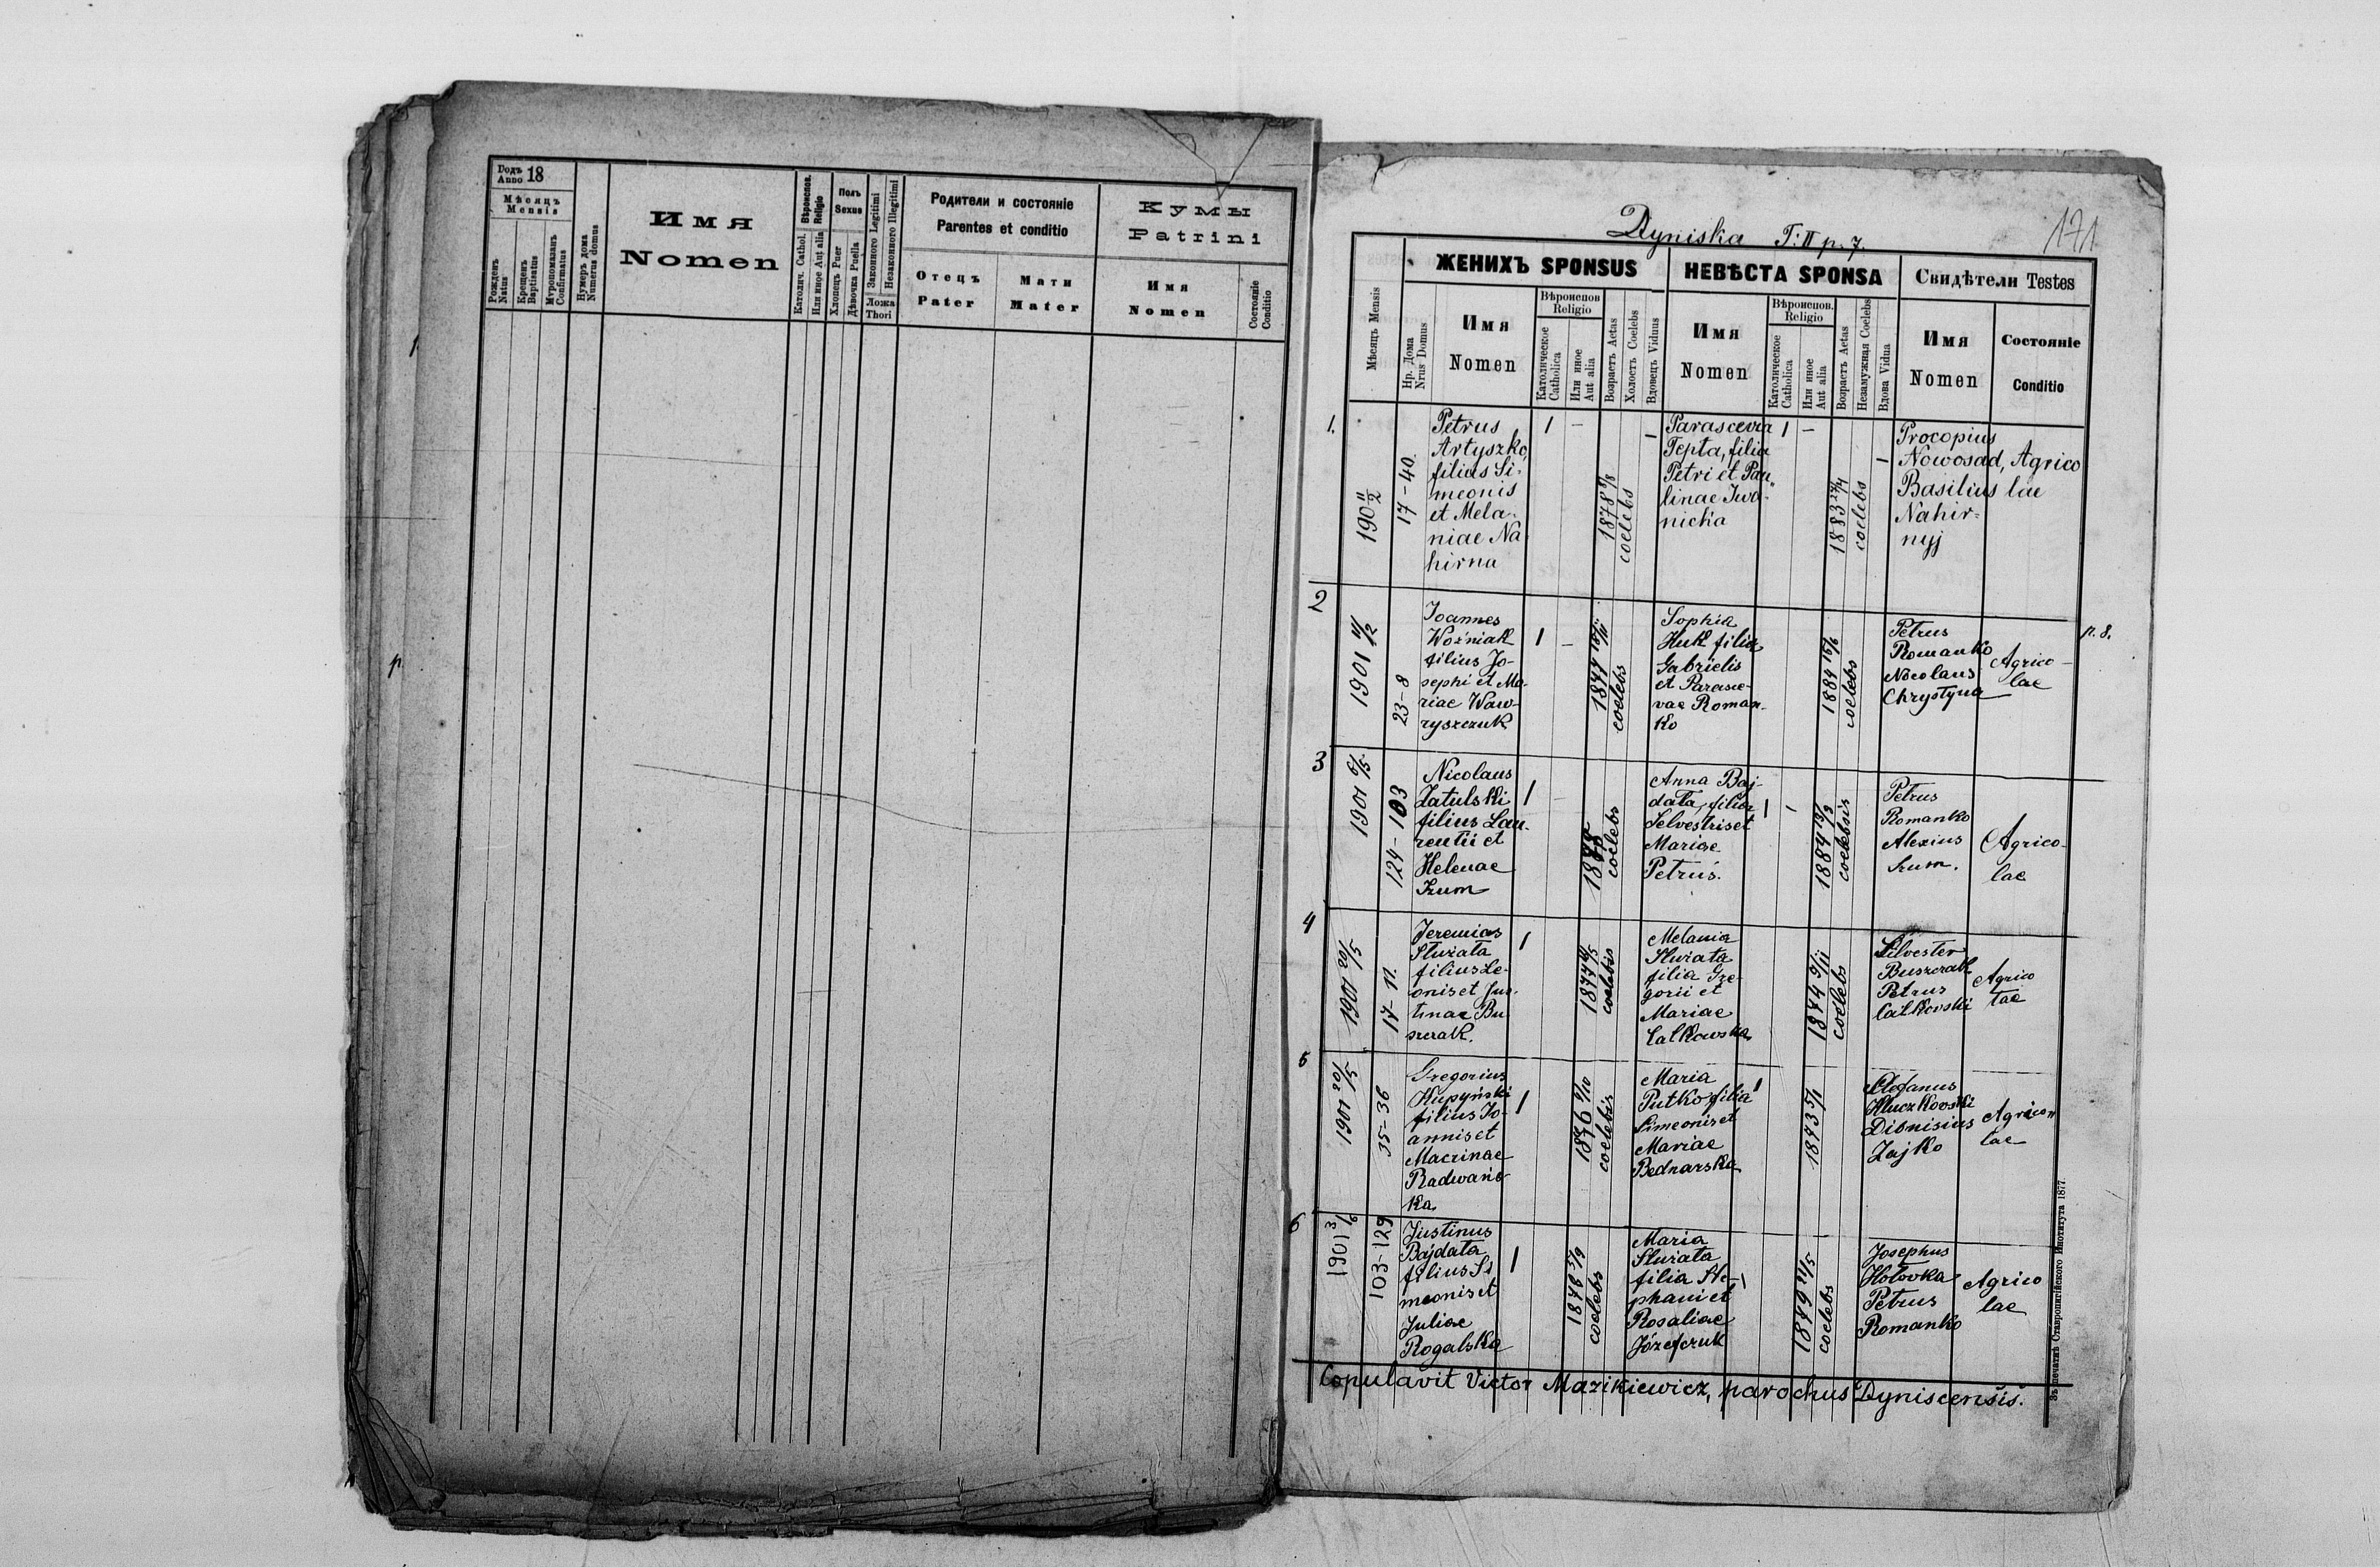 Годъ Anno 18
Мѣсяцъ
Mensis
Рожденъ
Natus
Крещенъ
Baptisatus
Мѵропомазанъ
Confirmatus
Нумеръ дома
Numerus domus
Имя
Nomen
Вѣроиспов.
Religio
Католич. Cathol.
Или иное Aut alia
Полъ
Sexus
Хлопецъ Puer
Дѣвочка Puella
Законного Legitimi
Незаконного Illegitimi
Ложа
Thori
Родители и состояніе
Parentes et conditio
Отецъ
Pater
Мати
Mater
Кумы
Patrini
Имя
Nomen
Состояніе
Conditio
Dyniska T: II p. 7.
171
ЖЕНИХЪ SPONSUS
НЕВѢСТА SPONSA
Свидѣтели Testes
Мѣсяцъ Mensis
Нр. Дома
Nrus Domus
Имя
Nomen
Вѣроиспов
Religio
Католическое
Catholica
Или иное
Aut alia
Возрастъ Aetas
Холостъ Coelebs
Вдовецъ Viduus
Имя
Nomen
Вѣроиспов.
Religio
Католическое
Catholica
Или иное
Aut alia
Возрастъ Aetas
Незамужная Coelebs
Вдова Vidua
Имя
Nomen
Состояніе
Conditio
1.
190 11/2
17-40.
Petrus
Artyszko,
filius Si-
meonis
et Mela-
niae Na
hirna
1878
coelebs
Parascevia
Tepta, filia
Petri et Pau-
linae Iwa-
nicka
1883 27/4
coelebs
Procopius
Nowosad,
Basilius
Nahir-
nyj
Agrico
lae
2
1901 11/2
23-8
Joannes
Woźniak
filius Jo-
sephi et Ma-
riae Waw-
ryszczuk
1877
coelebs
Sophia
Huk filia
Gabrielis
et Parasce-
vae Roman-
ko
1884 16/6
coelebs
Petrus
Romanko
Nicolaus
Chrystyna
Agrico-
lae
p. 8.
3
1901 6/5
124-103
Nicolaus
Zatulski
filius Lau-
rentii et
Helenae
Szum
1878
coelebs
Anna Baj-
data, filia
Selvestris et
Mariae
Petrus.
1884 13/3
coelebsis
Petrus
Romanko
Alexius
Szum.
Agrico-
lae
4
1901 20/5
17-11.
Jeremias
Służata
filius Le-
onis et Jus-
tinae Bu
szczak.
1877
coelebis
Melania
Służata
filia Gre-
gorii et
Mariae
Całkowska
1874 9/11
coelebs
Silvester
Buszczak
Petrus
Całkovski
Agrico
lae
5
1901 20/5
35-36
Gregorius
Kupyński
filius Jo-
annis et
Macrinae
Radwańs-
ka
1876 6/10
coelebis
Maria
Putko filia
Simeonis et
Mariae
Bednarska
1873 5/1
Stefanus
Kluczkovski
Dionisius
Zajko
Agrico-
lae
6
1901 3/6
103-129
Justinus
Bajdata
filius Si
meonis et
Juliae
Rogalska
1876 5/9
coelebs
Maria
Służata
filia Ste-
phani et
Rosaliae
Józefczuk
1879 21/5
coelebs
Josephus
Hołovka
Petrus
Romanko
Agrico
lae
Copulavit Victor Mazikiewicz, parochus Dyniscensis.
Зъ печатнѣ Ставропигійского Института 1877.